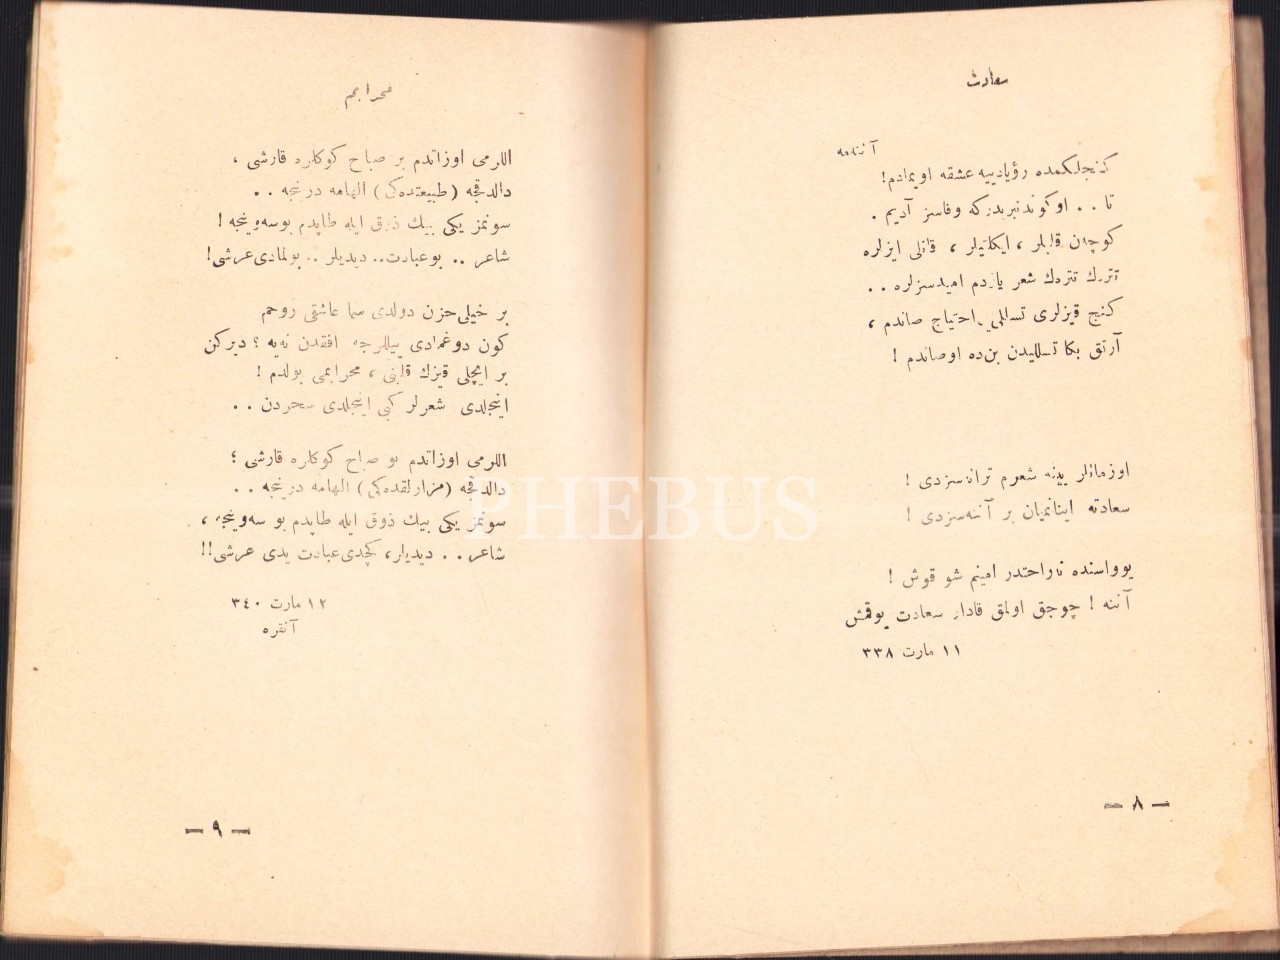 سعادت
آننه‌مه
كنجلكمده رؤيادييه عشقه اويمادم!
تا . . اوكوندنبريدركه وفاسز آديم .
كوچن قابلر ، ايكلتيلر ، قانلى ايزلره
تترك تترەك شعر يازدم اميدسزلره . .
كنج قيزلرى تسلى‌يه احتياج صاندم ،
آرتق بكا تسليدن بن‌ده اوصاندم !
اوزمانلر يينه شعرم ترانه‌سزدى !
سعادته اينانميان بر آننه‌سزدى !
يوواسنده ناراحتدر امينم شو قوش !
آننه ! چوجق اولمق قادار سعادت يوقمش
١١ مارت ٣٣٨
— ٨ —
محرابم
اللرمى اوزاتدم بر صباح كوكلره قارشى ،
دالدقجه (طبيعتده‌كى) الهامه درنجه . .
سونمز يكى بيك ذوق ايله طاپدم بوسه‌وينجه !
شاعر . . بوعبادت.. ديديلر .. بولمادى‌عرشى!
بر خيلى‌حزن دولدى سما عاشقى روحم
كون دوغمادى ييللرجه افقدن نه‌يه ؟ ديركن
بر ايچلى قيزك قلبنى ، محرابمى بولدم !
اينجلدى شعرلر كبى اينجلدى سحردن . .
اللرمى اوزاتدم بو صباح كوكلره قارشى ؛
دالدقجه (مزارلقده‌كى) الهامه درنجه . .
سونمز يكى بيك ذوق ايله طاپدم بو سه‌وينجه ،
شاعر . . ديديلر، كچدى‌عبادت يدى عرشى!!
١٢ مارت ٣٤٠
آنقره
— ٩ —
PHEBUS